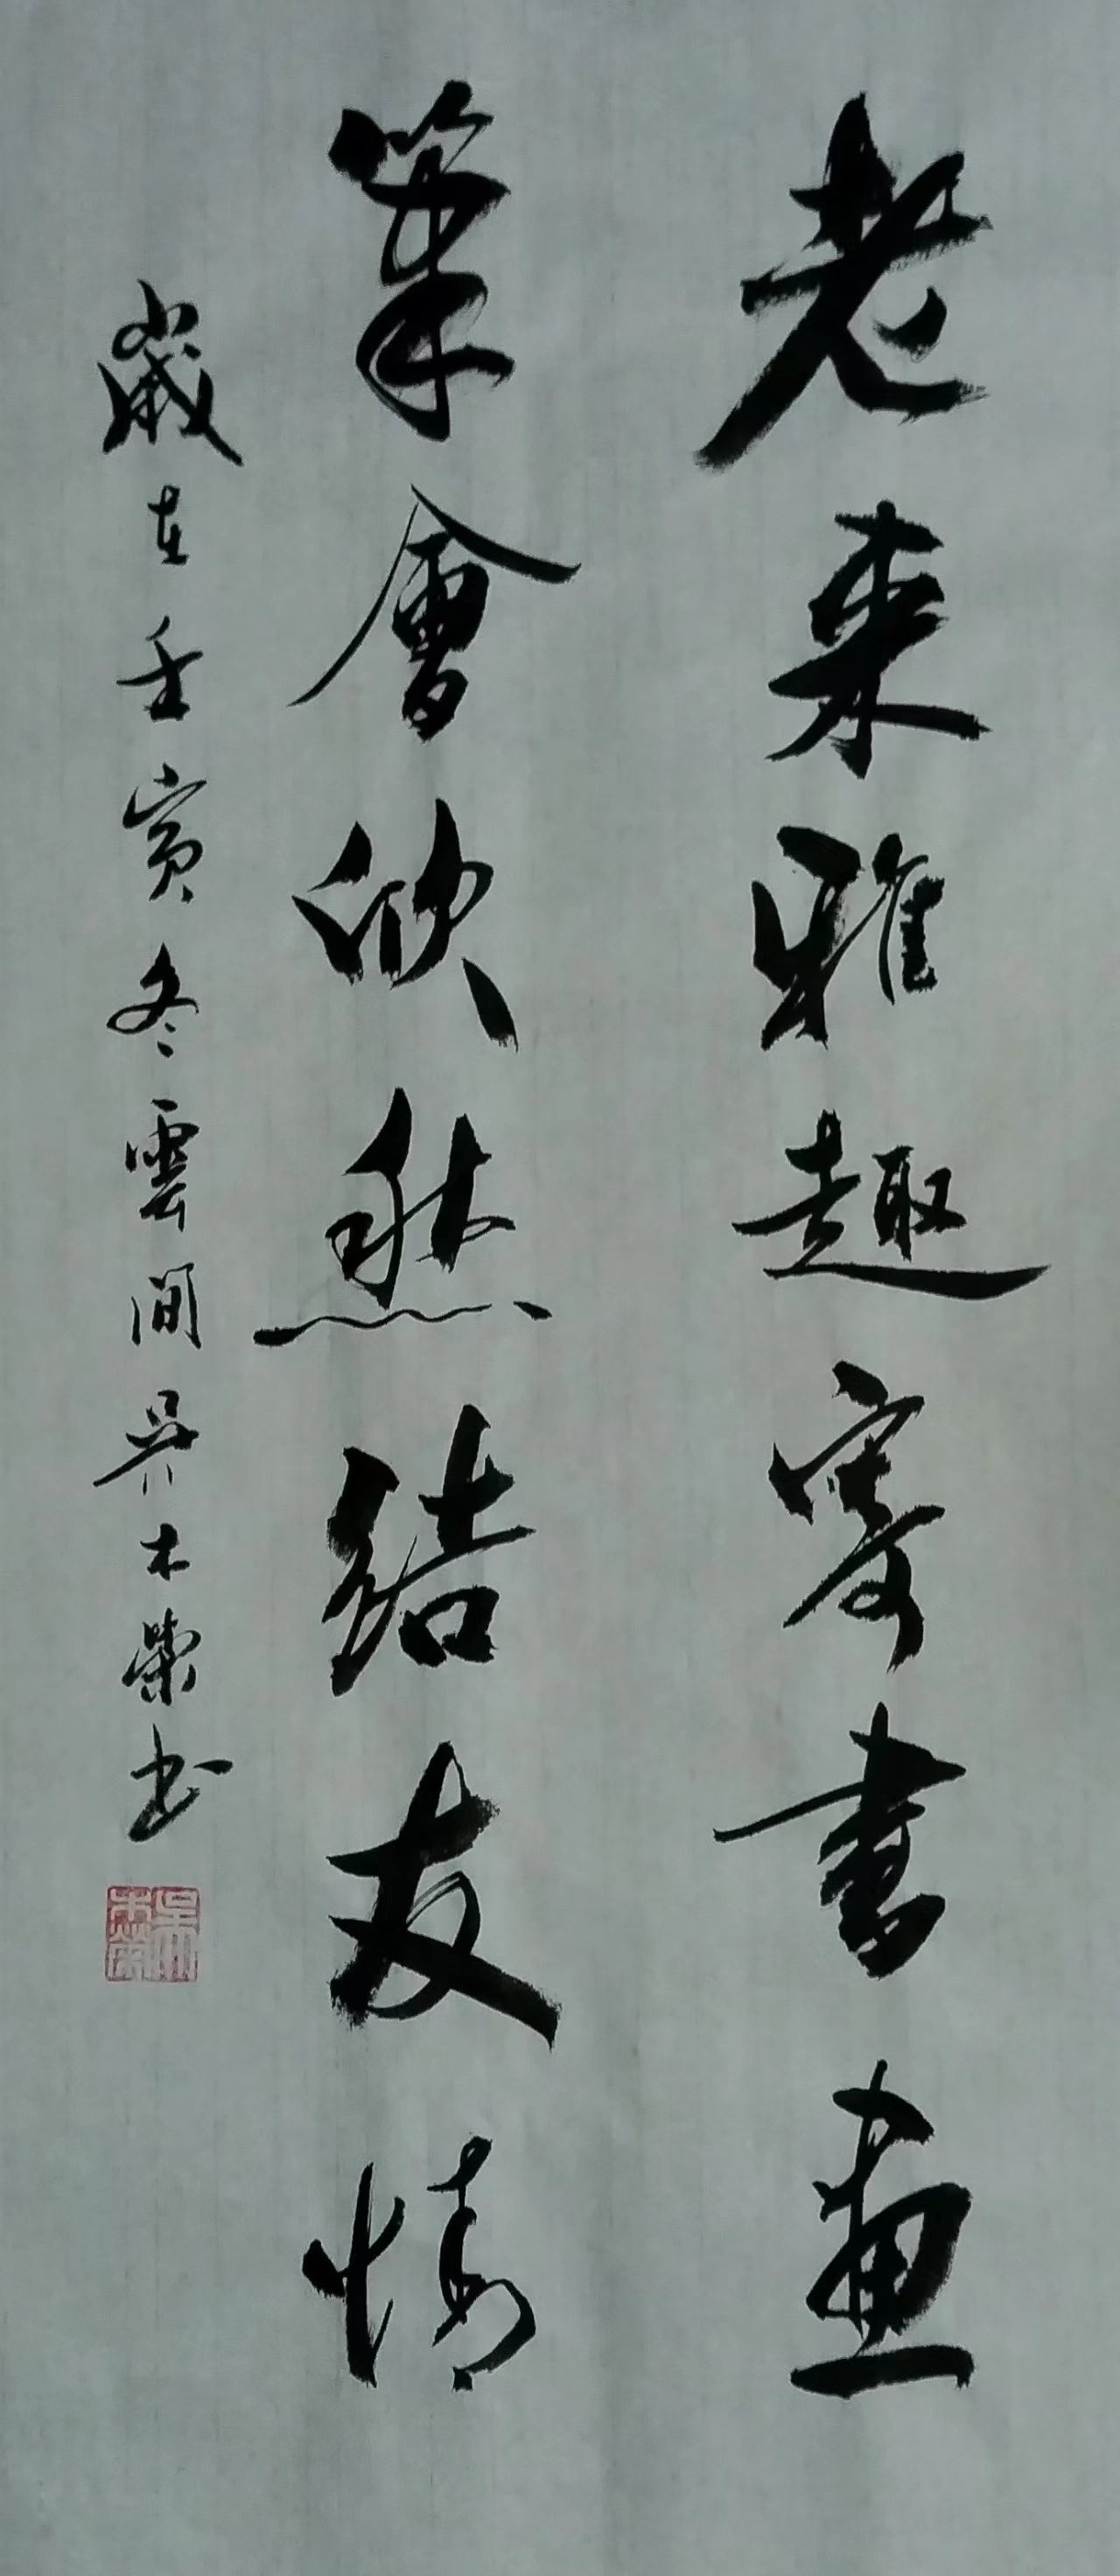 老來雅趣寄書畫
筆會欣然結友情
歲在壬寅冬雲間吳木榮书
吳木榮